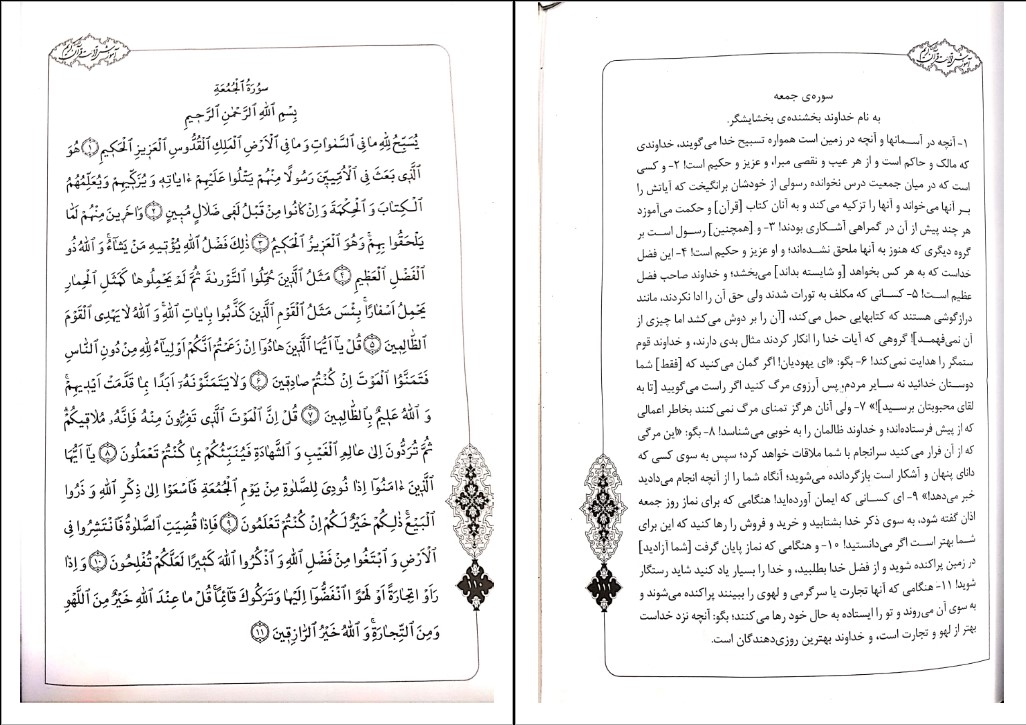 آموزش قرائت قرآن کریم
سُورَةُ الْجُمُعَةِ
بِسْمِ اللّٰهِ الرَّحْمٰنِ الرَّحِيمِ
يُسَبِّحُ لِلّٰهِ مَا فِي السَّمٰوَاتِ وَ مَا فِي الْاَرْضِ الْمَلِكِ الْقُدُّوسِ الْعَزِيزِ الْحَكِيمِ ﴿١﴾ هُوَ
الَّذِي بَعَثَ فِي الْاُمِّيِّينَ رَسُولًا مِنْهُمْ يَتْلُوا عَلَيْهِمْ ءَايَاتِهِ وَ يُزَكِّيهِمْ وَ يُعَلِّمُهُمُ
الْكِتَابَ وَ الْحِكْمَةَ وَ اِنْ كَانُوا مِنْ قَبْلُ لَفِي ضَلَالٍ مُبِينٍ ﴿٢﴾ وَ ءَاخَرِينَ مِنْهُمْ لَمَّا
يَلْحَقُوا بِهِمْ وَ هُوَ الْعَزِيزُ الْحَكِيمُ ﴿٣﴾ ذٰلِكَ فَضْلُ اللّٰهِ يُؤْتِيهِ مَنْ يَشَاءُ وَ اللّٰهُ ذُو
الْفَضْلِ الْعَظِيمِ ﴿٤﴾ مَثَلُ الَّذِينَ حُمِّلُوا التَّوْرٰىةَ ثُمَّ لَمْ يَحْمِلُوهَا كَمَثَلِ الْحِمَارِ
يَحْمِلُ اَسْفَارًا بِئْسَ مَثَلُ الْقَوْمِ الَّذِينَ كَذَّبُوا بِاٰيَاتِ اللّٰهِ وَ اللّٰهُ لَا يَهْدِي الْقَوْمَ
الظَّالِمِينَ ﴿٥﴾ قُلْ يَا اَيُّهَا الَّذِينَ هَادُوا اِنْ زَعَمْتُمْ اَنَّكُمْ اَوْلِيَاءُ لِلّٰهِ مِنْ دُونِ النَّاسِ
فَتَمَنَّوُا الْمَوْتَ اِنْ كُنْتُمْ صَادِقِينَ ﴿٦﴾ وَ لَا يَتَمَنَّوْنَهُ اَبَدًا بِمَا قَدَّمَتْ اَيْدِيهِمْ
وَ اللّٰهُ عَلِيمٌ بِالظَّالِمِينَ ﴿٧﴾ قُلْ اِنَّ الْمَوْتَ الَّذِي تَفِرُّونَ مِنْهُ فَاِنَّهُ مُلَاقِيكُمْ
ثُمَّ تُرَدُّونَ اِلٰى عَالِمِ الْغَيْبِ وَ الشَّهَادَةِ فَيُنَبِّئُكُمْ بِمَا كُنْتُمْ تَعْمَلُونَ ﴿٨﴾ يَا اَيُّهَا
الَّذِينَ ءَامَنُوا اِذَا نُودِيَ لِلصَّلٰوةِ مِنْ يَوْمِ الْجُمُعَةِ فَاسْعَوْا اِلٰى ذِكْرِ اللّٰهِ وَ ذَرُوا
الْبَيْعَ ذٰلِكُمْ خَيْرٌ لَكُمْ اِنْ كُنْتُمْ تَعْلَمُونَ ﴿٩﴾ فَاِذَا قُضِيَتِ الصَّلٰوةُ فَانْتَشِرُوا فِي
الْاَرْضِ وَ ابْتَغُوا مِنْ فَضْلِ اللّٰهِ وَ اذْكُرُوا اللّٰهَ كَثِيرًا لَعَلَّكُمْ تُفْلِحُونَ ﴿١٠﴾ وَ اِذَا
رَاَوْا تِجَارَةً اَوْ لَهْوًا انْفَضُّوا اِلَيْهَا وَ تَرَكُوكَ قَائِمًا قُلْ مَا عِنْدَ اللّٰهِ خَيْرٌ مِنَ اللَّهْوِ
وَ مِنَ التِّجَارَةِ وَ اللّٰهُ خَيْرُ الرَّازِقِينَ ﴿١١﴾
آموزش قرائت قرآن کریم
سوره‌ی جمعه
به نام خداوند بخشنده‌ی بخشایشگر.
۱- آنچه در آسمانها و آنچه در زمین است همواره تسبیح خدا می‌گویند، خداوندی
که مالک و حاکم است و از هر عیب و نقصی مبرا، و عزیز و حکیم است! ۲- و کسی
است که در میان جمعیت درس نخوانده رسولی از خودشان برانگیخت که آیاتش را
بر آنها می‌خواند و آنها را تزکیه می‌کند و به آنان کتاب [قرآن] و حکمت می‌آموزد
هر چند پیش از آن در گمراهی آشکاری بودند! ۳- و [همچنین] رسول است بر
گروه دیگری که هنوز به آنها ملحق نشده‌اند؛ و او عزیز و حکیم است! ۴- این فضل
خداست که به هر کس بخواهد [و شایسته بداند] می‌بخشد؛ و خداوند صاحب فضل
عظیم است! ۵- کسانی که مکلف به تورات شدند ولی حق آن را ادا نکردند، مانند
درازگوشی هستند که کتابهایی حمل می‌کند، [آن را بر دوش می‌کشد اما چیزی از
آن نمی‌فهمد]! گروهی که آیات خدا را انکار کردند مثال بدی دارند، و خداوند قوم
ستمگر را هدایت نمی‌کند! ۶- بگو: «ای یهودیان! اگر گمان می‌کنید که [فقط] شما
دوستان خدائید نه سایر مردم، پس آرزوی مرگ کنید اگر راست می‌گویید [تا به
لقای محبوبتان برسید]!» ۷- ولی آنان هرگز تمنای مرگ نمی‌کنند بخاطر اعمالی
که از پیش فرستاده‌اند؛ و خداوند ظالمان را به خوبی می‌شناسد! ۸- بگو: «این مرگی
که از آن فرار می‌کنید سرانجام با شما ملاقات خواهد کرد؛ سپس به سوی کسی که
دانای پنهان و آشکار است بازگردانده می‌شوید؛ آنگاه شما را از آنچه انجام می‌دادید
خبر می‌دهد!» ۹- ای کسانی که ایمان آورده‌اید! هنگامی که برای نماز روز جمعه
اذان گفته شود، به سوی ذکر خدا بشتابید و خرید و فروش را رها کنید که این برای
شما بهتر است اگر می‌دانستید! ۱۰- و هنگامی که نماز پایان گرفت [شما آزادید]
در زمین پراکنده شوید و از فضل خدا بطلبید، و خدا را بسیار یاد کنید شاید رستگار
شوید! ۱۱- هنگامی که آنها تجارت یا سرگرمی و لهوی را ببینند پراکنده می‌شوند و
به سوی آن می‌روند و تو را ایستاده به حال خود رها می‌کنند؛ بگو: آنچه نزد خداست
بهتر از لهو و تجارت است، و خداوند بهترین روزی‌دهندگان است.